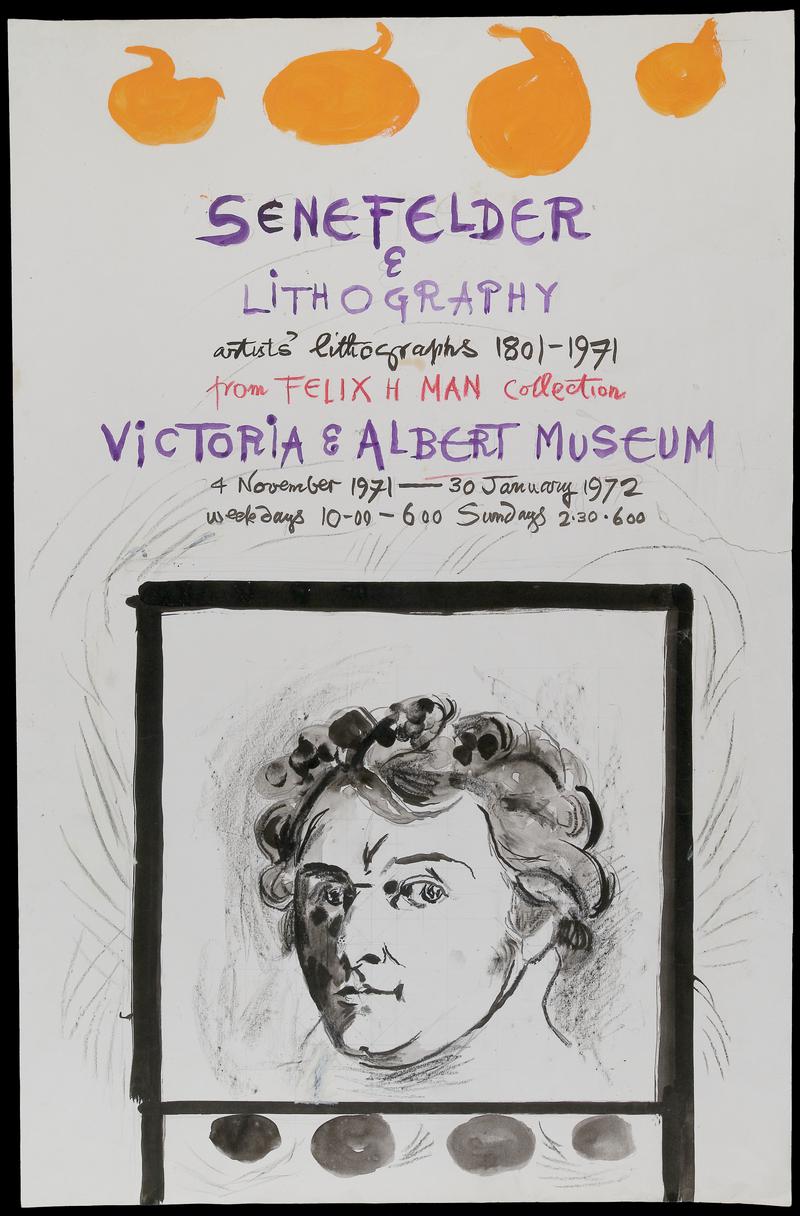 SENEFELDER
&
LITHOGRAPHY
artists' lithographs 1801-1971
from FELIX H MAN collection
VICTORIA & ALBERT MUSEUM
4 November 1971 — 30 January 1972
weekdays 10-00 - 6 00 Sundays 2.30.600